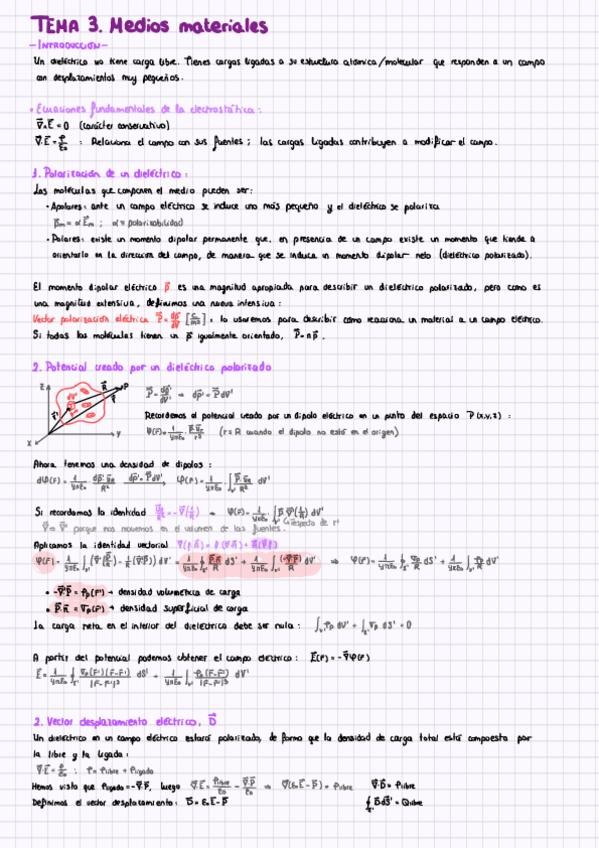 TEMA 3. Medios materiales
- INTRODUCCIÓN -
Un dieléctrico no tiene carga libre. Tienes cargas ligadas a su estructura atómica/molecular que responden a un campo
con desplazamientos muy pequeños.
• Ecuaciones fundamentales de la electrostática:
∇×E = 0 (carácter conservativo)
∇·E = ρ/ε₀ : Relaciona el campo con sus fuentes; las cargas ligadas contribuyen a modificar el campo.
1. Polarización de un dieléctrico:
Las moléculas que componen el medio pueden ser:
• Apolares: ante un campo eléctrico se induce uno más pequeño y el dieléctrico se polariza
p⃗m = α E⃗m ; α ≡ polarizabilidad
• Polares: existe un momento dipolar permanente que, en presencia de un campo existe un momento que tiende a
orientarlo en la dirección del campo, de manera que se induce un momento dipolar neto (dieléctrico polarizado).
El momento dipolar eléctrico p⃗ es una magnitud apropiada para describir un dieléctrico polarizado, pero como es
una magnitud extensiva, definimos una nueva intensiva:
Vector polarización eléctrica P⃗ = dp⃗/dV [C/m²] : lo usaremos para describir cómo reacciona un material a un campo eléctrico.
Si todas las moléculas tienen un p⃗ igualmente orientado, P⃗ = n p⃗.
2. Potencial creado por un dieléctrico polarizado
z R⃗ P r⃗ r⃗' x y
P⃗ = dp⃗/dV' ⇒ dp⃗ = P⃗ dV'
Recordemos el potencial creado por un dipolo eléctrico en un punto del espacio P(x,y,z) :
(r = R cuando el dipolo no esté en el origen)
Ahora tenemos una densidad de dipolos :
Si recordamos la identidad
porque nos movemos en el volumen de las fuentes.
respecto de r'
Aplicamos la identidad vectorial
• -∇·P⃗ = ρp(r') → densidad volumétrica de carga
• P⃗·n⃗ = σp(r') → densidad superficial de carga
La carga neta en el interior del dieléctrico debe ser nula : ∫ρp dV' + ∫σp dS' = 0
A partir del potencial podemos obtener el campo eléctrico : E⃗(r) = -∇φ(r)
2. Vector desplazamiento eléctrico, D⃗
Un dieléctrico en un campo eléctrico estará polarizado, de forma que la densidad de carga total está compuesta por
la libre y la ligada :
∇·E⃗ = ρ/ε₀ ; ρ = ρlibre + ρligada
Hemos visto que ρligada = -∇·P⃗, luego ∇·E⃗ = ρlibre/ε₀ - ∇·P⃗/ε₀ ⇒ ∇(ε₀E⃗-P⃗) = ρlibre ∇·D⃗ = ρlibre
Definimos el vector desplazamiento : D⃗ = ε₀E⃗-P⃗ ∮ D⃗dS⃗' = Qlibre